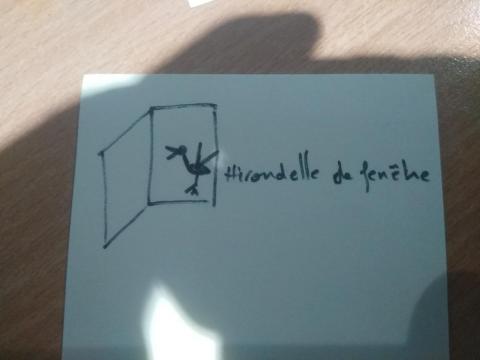 Hirondelle de fenêtre